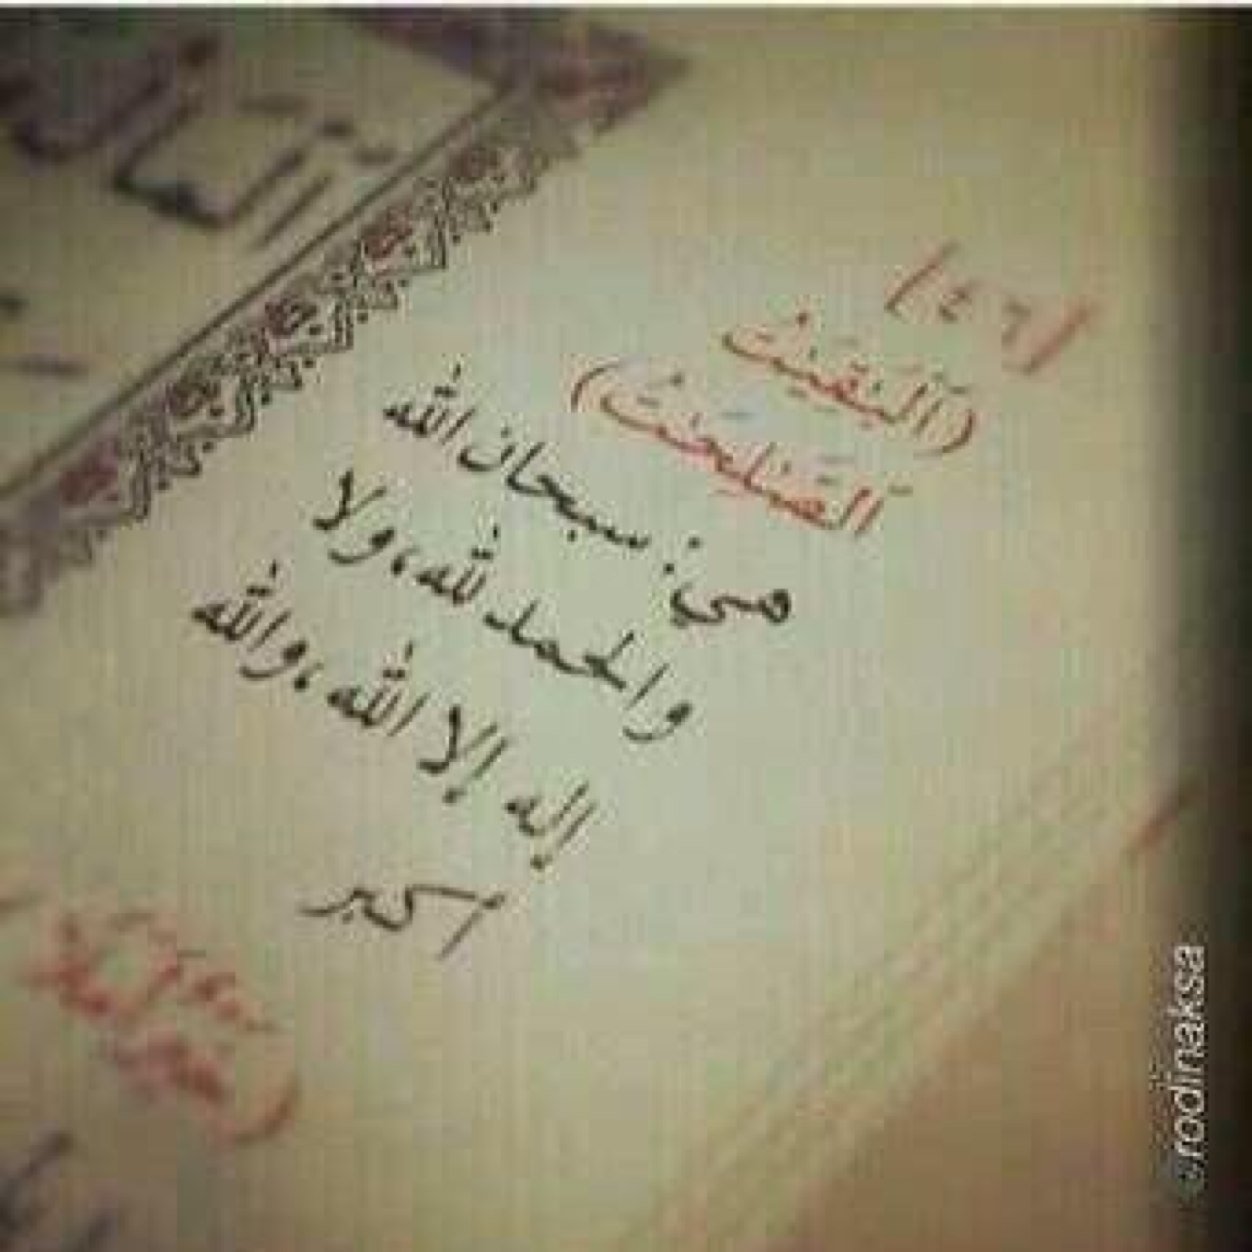 /٤٦/
(ٱلْبَٰقِيَٰتُ
ٱلصَّٰلِحَٰتُ)
هي: سبحان الله
والحمد لله، ولا
إله إلا الله، والله
أكبر
©rodinaksa